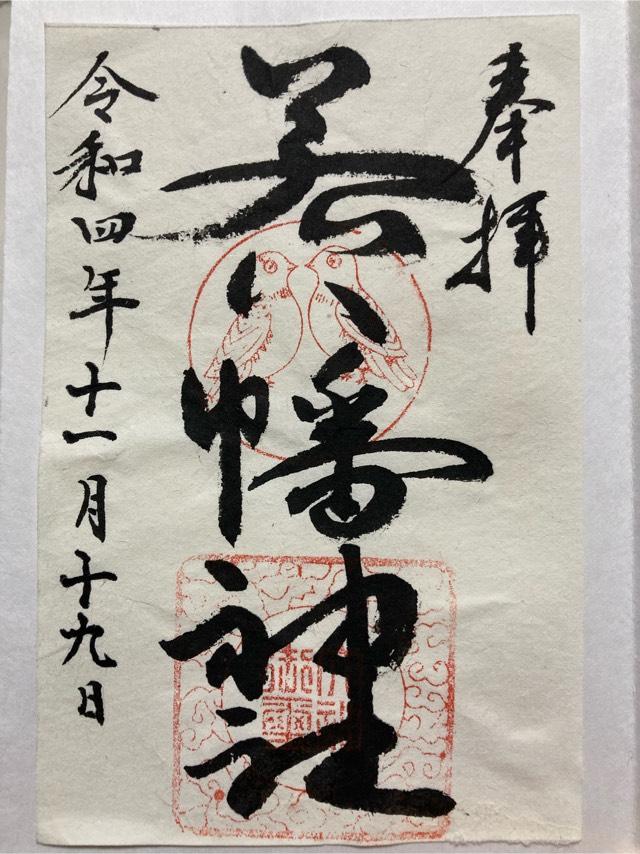 奉拝
若八幡神社
令和四年十一月十九日